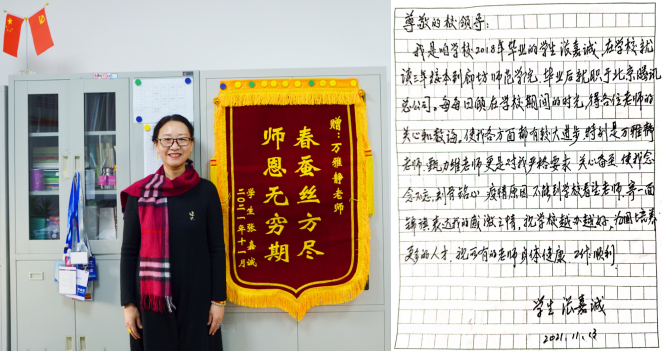 赠：万雅静老师
春蚕丝方尽
师恩无穷期
学生张嘉诚
二〇二一年十一月
尊敬的校领导：
我是咱学校2018年毕业的学生张嘉诚，在学校就
读三年后本到廊坊师范学院，毕业后就职于北京腾讯
总公司。每每回顾在学校期间的时光，得各位老师的
关心和教诲，使我各方面都有较大进步，特别是万雅静
老师、甄力维老师更是对我严格要求，关心备至，使我念
念不忘，刻骨铭心，疫情原因不能到学校看望老师，寄一面
锦旗表达我的感激之情，祝学校越办越好，为国培养
更多的人才，祝所有的老师身体健康 工作顺利
学生 张嘉诚
2021.11.13